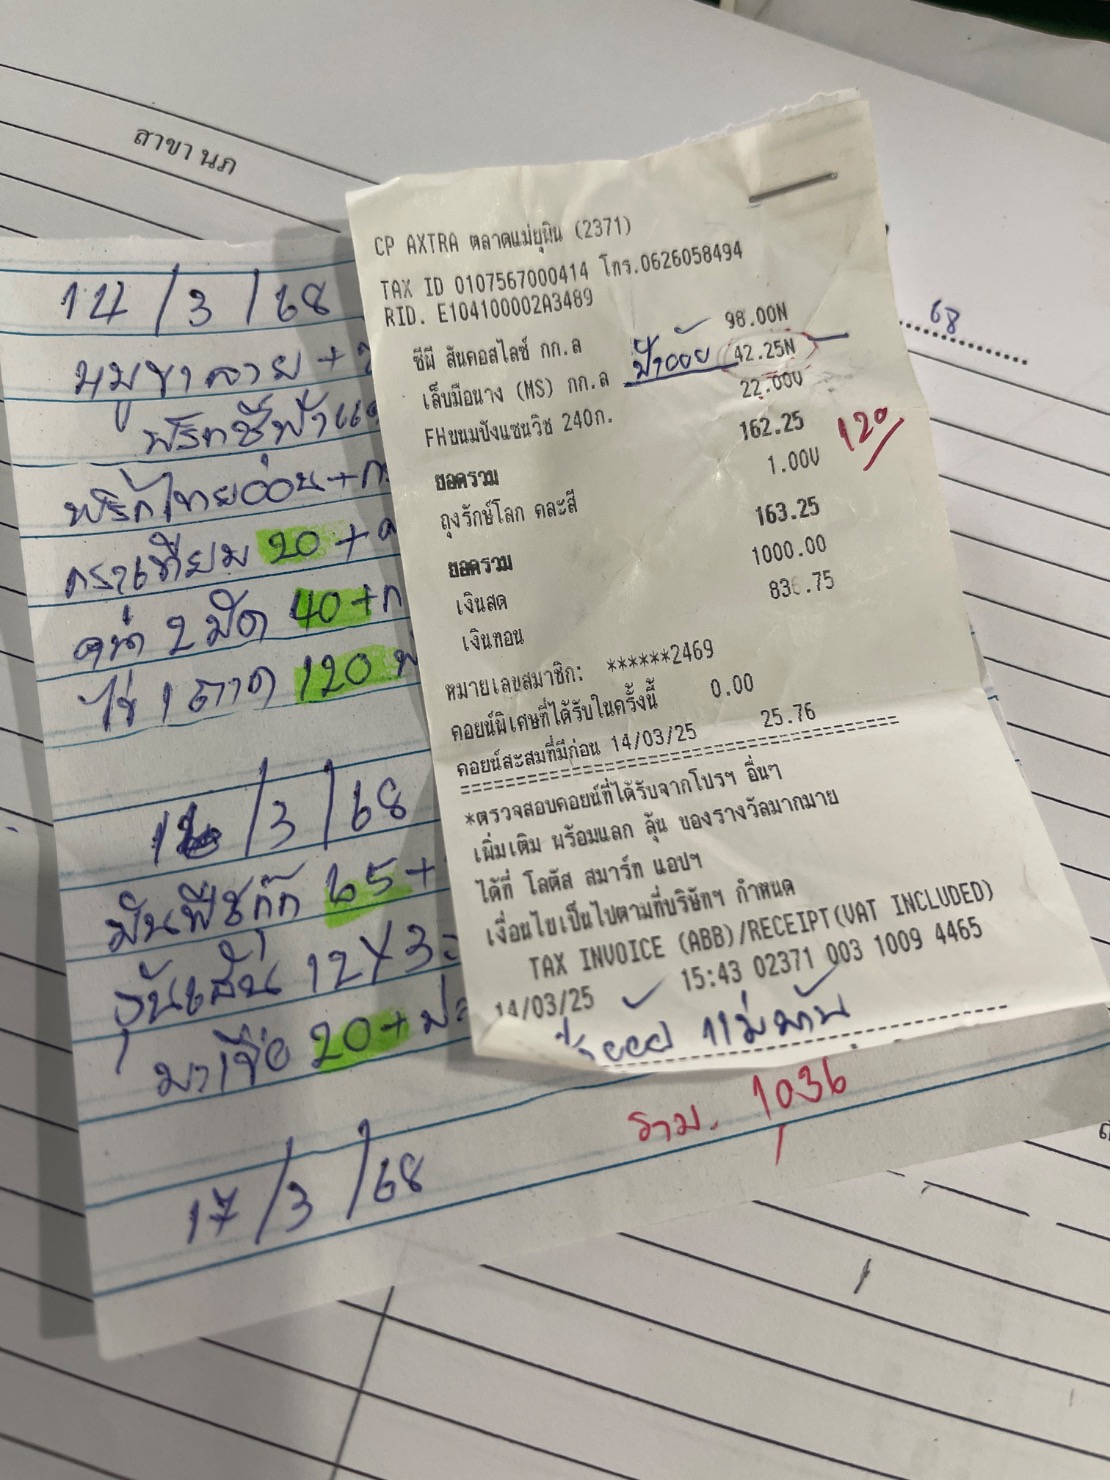 สาขา นภ
68
14/3/68
พริกไทยอ่อน+
กระเทียม 20+
คะน้า 2 มัด 40+
ไข่ 1 ถาด 120
16/3/68
65+
วุ้นเส้น 12X3=
มาเขือ 20+
17/3/68
รวม. 1036
CP AXTRA ตลาดแม่ยุพิน (2371)
TAX ID 0107567000414 โทร.0626058494
RID. E104100002A3489
ซีพี สันคอสไลซ์ กก.ล 98.00N
เล็บมือนาง (MS) กก.ล ป้าออย 42.25N
FHขนมปังแซนวิช 240ก. 22.00V
ยอดรวม 162.25
120
ถุงรักษ์โลก คละสี 1.00V
ยอดรวม 163.25
เงินสด 1000.00
เงินทอน 836.75
หมายเลขสมาชิก: ******2469
คอยน์พิเศษที่ได้รับในครั้งนี้ 0.00
คอยน์สะสมที่มีก่อน 14/03/25 25.76
*ตรวจสอบคอยน์ที่ได้รับจากโปรฯ อื่นๆ
เพิ่มเติม พร้อมแลก ลุ้น ของรางวัลมากมาย
ได้ที่ โลตัส สมาร์ท แอปฯ
เงื่อนไขเป็นไปตามที่บริษัทฯ กำหนด
TAX INVOICE (ABB)/RECEIPT(VAT INCLUDED)
14/03/25 15:43 02371 003 1009 4465